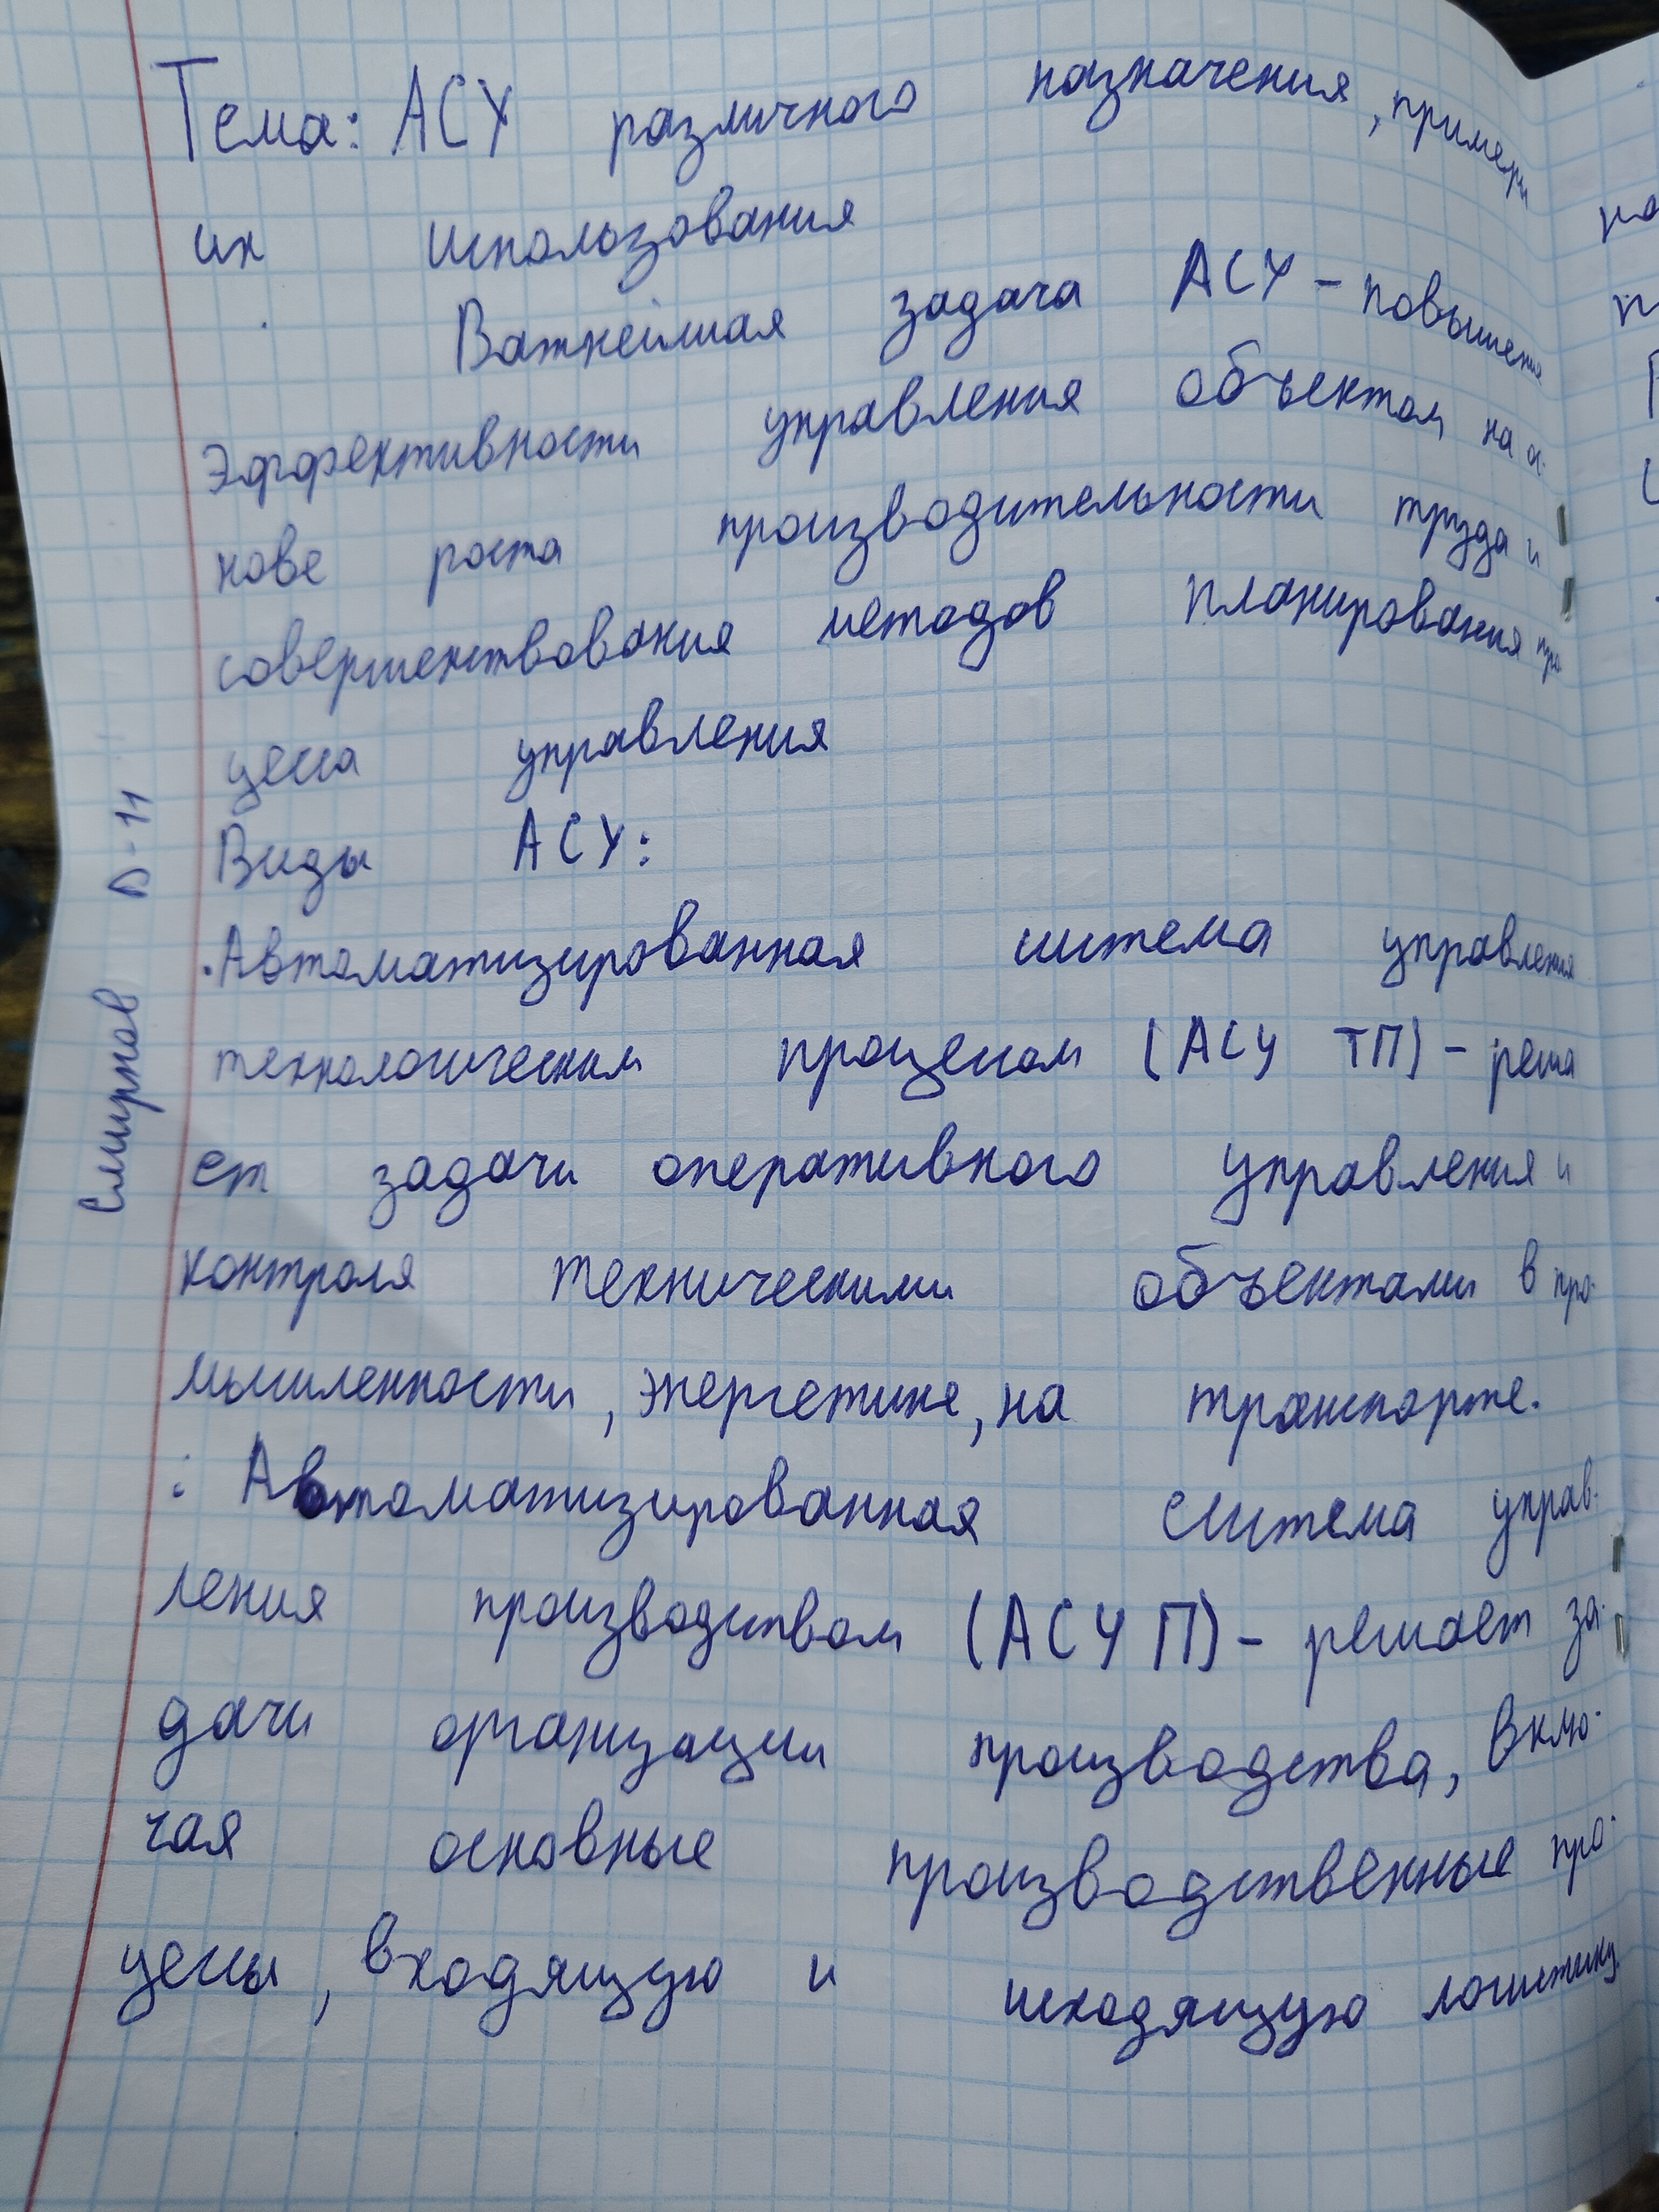 Тема: АСУ различного назначения, примеры
их использования
Важнейшая задача АСУ - повышение
эффективности управления объектом на ос-
нове роста производительности труда и
совершенствования методов планирования про
цесса управления
Виды АСУ:
·Автоматизированная система управления
технологическим процессом (АСУ ТП) - реша
ет задачи оперативного управления и
контроля техническими объектами в про-
мышленности, энергетике, на транспорте.
· Автоматизированная система управ-
ления производством (АСУ П) - решает за-
дачи организации производства, вклю-
чая основные производственные про-
цессы, входящую и исходящую логистику.
Смирнов